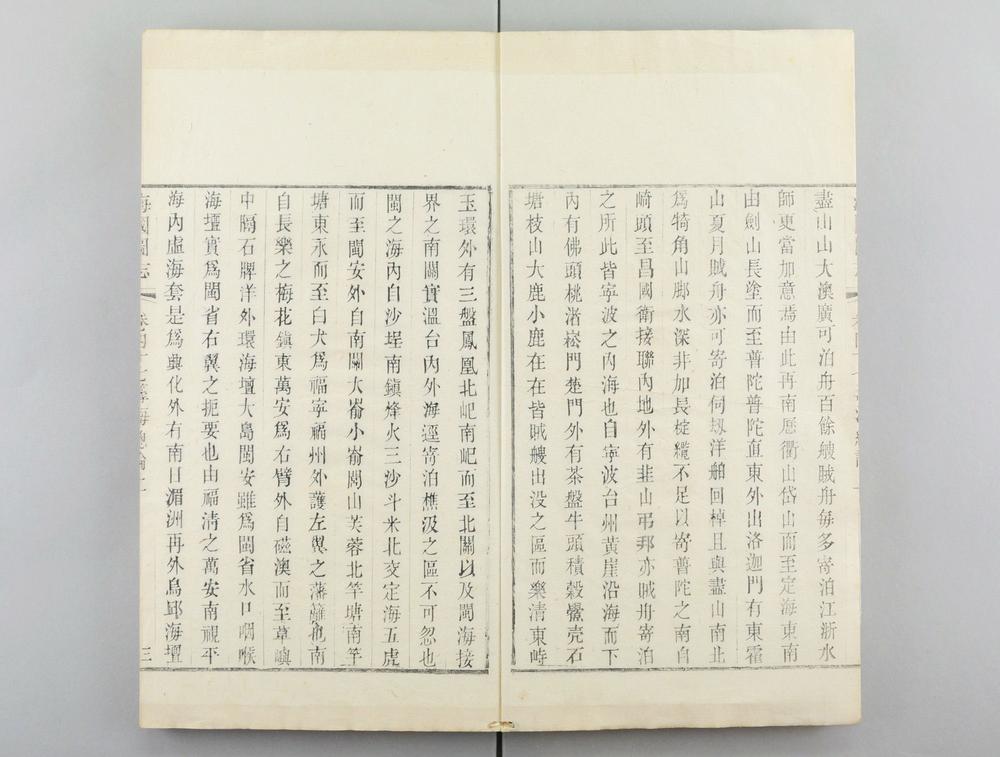 盡山山大澳廣可泊舟百餘艘賊舟每多寄泊江浙水
師更當加意焉由此再南歷衢山岱山而至定海東南
由劍山長塗而至普陀普陀直東外出洛迦門有東霍
山夏月賊舟亦可寄泊伺刼洋舶回棹且與盡山南北
爲犄角山腳水深非加長椗纜不足以寄普陀之南自
崎頭至昌國衛接聯內地外有韭山弔邦亦賊舟寄泊
之所此皆寧波之內海也自寧波台州黃崖沿海而下
內有佛頭桃渚崧門楚門外有茶盤牛頭積榖鱟壳石
塘枝山大鹿小鹿在在皆賊艘出沒之區而樂清東峙
玉環外有三盤鳳凰北屺南屺而至北關以及閩海接
界之南關實溫台內外海逕寄泊樵汲之區不可忽也
閩之海內自沙埕南鎮烽火三沙斗米北茭定海五虎
而至閩安外自南關大崳小崳閭山芙蓉北竿塘南竿
塘東永而至白犬爲福寧福州外護左翼之藩籬也南
自長樂之梅花鎮東萬安爲右臂外自磁澳而至草嶼
中隔石牌洋外環海壇大島閩安雖爲閩省水口咽喉
海壇實爲閩省右翼之扼要也由福淸之萬安南視平
海內虛海套是爲興化外有南日湄洲再外烏邱海壇
海國圖志 卷四十七 籌海總論二 三